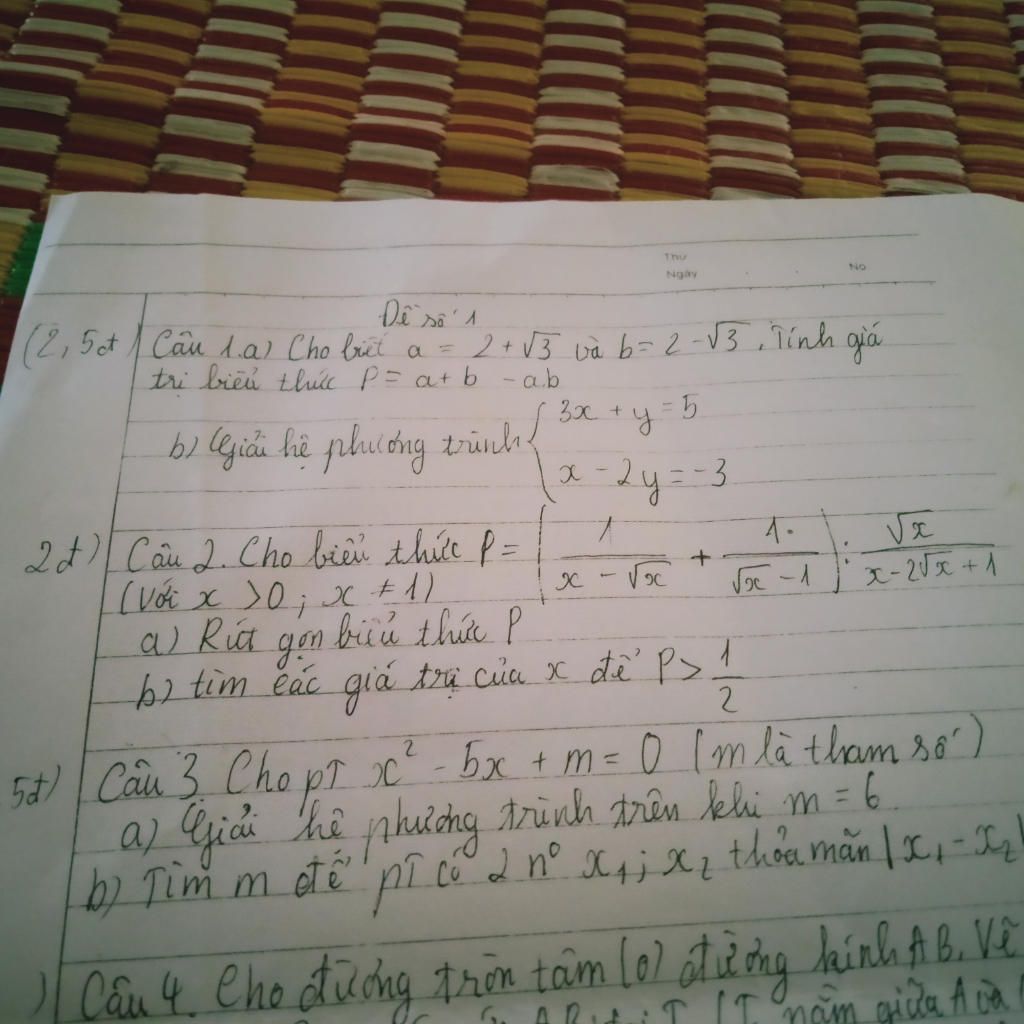 Thứ
Ngày . . No
Đề số 1
(2,5đ) Câu 1.a) Cho biết a = 2 + √3 và b = 2 - √3. Tính giá
trị biểu thức P = a + b - a.b
b) Giải hệ phương trình { 3x + y = 5
x - 2y = -3
2đ) Câu 2. Cho biểu thức P = (1/(x - √x) + 1/(√x - 1)) : √x/(x - 2√x + 1)
(với x > 0 ; x ≠ 1)
a) Rút gọn biểu thức P
b) tìm các giá trị của x để P > 1/2
5đ) Câu 3 Cho pT x² - 5x + m = 0 (m là tham số)
a) Giải hệ phương trình trên khi m = 6.
b) Tìm m để pT có 2 n⁰ x₁; x₂ thỏa mãn |x₁ - x₂|
) Câu 4. Cho đường tròn tâm (O) đường kính AB. Vẽ
nằm giữa A và